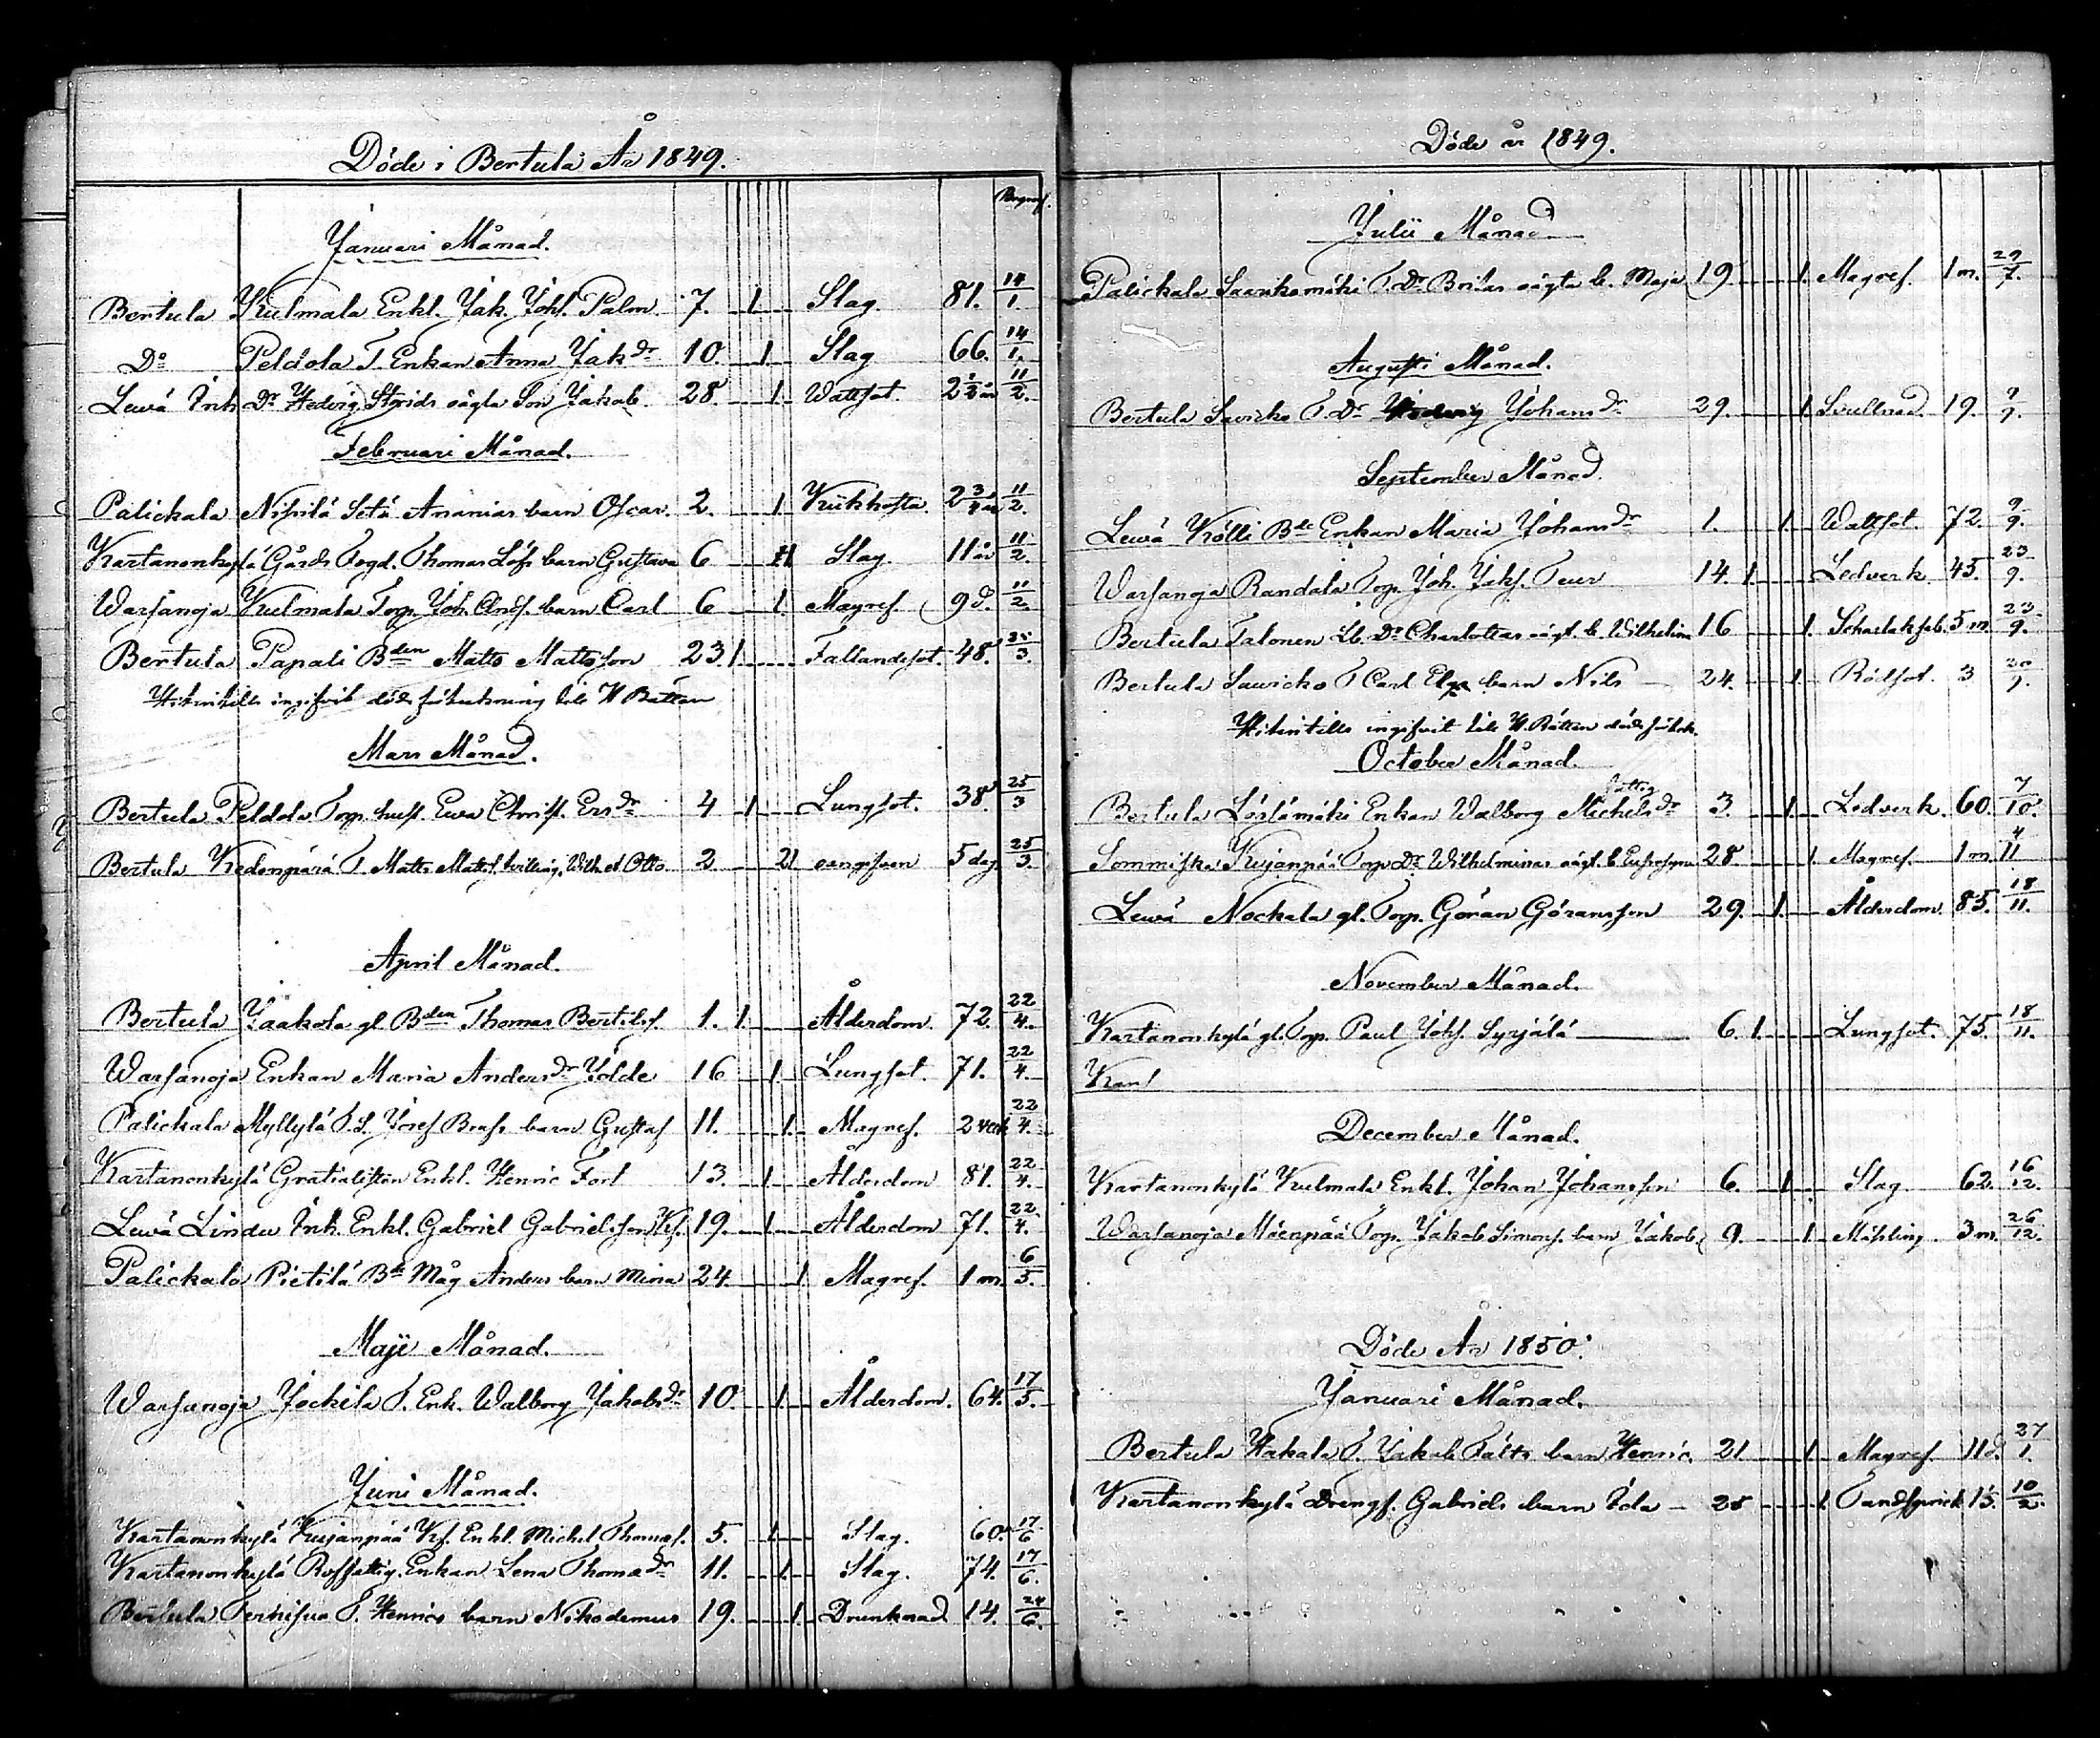 Döde i Bertula År 1849.
Begrafs.
Januari Månad.
Bertula Kulmala Enkl. Jak. Johs. Palm 7. 1 Slag. 81. 14/1.
Do Peldola T. Enkan Anna Jak dr 10. 1 Slag 66. 14/1.
Lewä Inh Dr Hedvig Stirids oägta Son Jakob 28. 1. Wattsot. 2 1/2 år 11/2.
Februari Månad.
Palickala Nisilä Setä Ananias barn Oscar. 2. 1. Kikhosta 2 3/4 år 11/2.
Kartanonkylä Gårds Fogd. Thomas Löfs barn Gustava 6 1 Slag. 11 år 11/2.
Warsanoja Kulmala Torp. Joh. Ands. barn Carl 6 1. Magref. 9 d. 11/2.
Bertula Papali Bden Matts Mattsson 23. 1 Fallandesot. 48. 25/3.
Hitintills ingifvit dödsförteckning till H Rätten
Mars Månad.
Bertula Peldola Torp. hust. Ewa Christ. Ers dr 4 1 Lungsot. 38. 25/3
Bertula Kedonperä T. Matts Matts. tvilling. Wilh. et Otto 2 21 oangifven 5 dag. 25/3.
April Månad.
Bertula Jaakola gl Bden Thomas Bertilss. 1. 1. Ålderdom. 72. 22/4.
Warsanoja Enkan Maria Anders dr Jolde 16 1 Lungsot. 71. 22/4.
Palickala Myllylä T.S. Josef Brafs barn Gustaf 11. 1. Magref. 2 veck 22/4.
Kartanonkylä Gratialisten Enkl. Henric Fort 13. 1. Ålderdom 81. 22/4.
Lewä Lindu Inh. Enkl. Gabriel Gabrielsson 19. 1 Ålderdom 71. 22/4.
Palickala Pietilä Bde Måg Anders barn Mina 24. 1 Magref. 1 m. 6/5.
Maji Månad.
Warsanoja Jockila T. Enk. Walborg Jakobs dr 10. 1. Ålderdom. 64. 17/5.
Juni Månad.
Kartanonkylä Kujanpää Enkl. Michel Thomass. 5. 1 Slag. 60. 17/6
Kartanonkylä Enkan Lena Thoma dr 11. 1. Slag. 74. 17/6.
Bertula T. Henrics barn Nikodemus 19. 1. Drunknad. 14. 24/6.
Döde år 1849.
Julii Månad
Palickala Saarikomäki T. Dr Britas oägta b. Maja 19. 1. Magref. 1 m. 29/7.
Augusti Månad.
Bertula Savicko T. Dr Hedvig Johans dr 29. 1. Svullnad. 19. 9/9.
September Månad.
Lewä Kölli Bde Enkan Maria Johans dr 1. 1. Wattsot. 72. 9/9.
Warsanoja Randala Torp. Joh. Jaks. Teur 14. 1. Ledverk. 45. 23/9.
Bertula Talonen Dr Charlottas oägt. b. Wilhelm 16 1. Scharlakfeb. 5 m. 23/9.
Bertula Savicko T Carl barn Nils 24. 1. Rödsot. 3
Hitintills ingifvit till H. Rätten dödsförteck.
October Månad.
fattig
Bertula Lörlämäki Enkan Walborg Michels dr 3. 1. Ledverk. 60. 7/10.
Sommiska Kujanpää Torps Dr Wilhelminas oägt. b. 28. 1. Magref. 1 m. 4/11
Lewä Nockala gl. Torp. Göran Göransson 29. 1. Ålderdom. 85. 18/11.
November Månad.
Kartanonkylä gl. Torp. Paul Johs. Syrjälä 6. 1. Lungsot. 75. 18/11.
Kart
December Månad.
Kartanonkylä Kulmala Enkl. Johan Johansson 6. 1 Slag. 62. 16/12.
Warsanoja Mäenpää Torp. Jakob Simons. barn Jakob 9. 1. Mässling. 3 m. 26/12.
Döde År 1850.
Januari Månad.
Bertula Hakala T. Jakob Fälts barn Henric. 21. 1. Magref. 11 d. 27/1.
Kartanonkylä Drengs. Gabriels barn Ida 28 1. Tandsprick. 10/2.